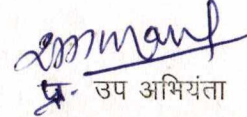 प्र. उप अभियंता